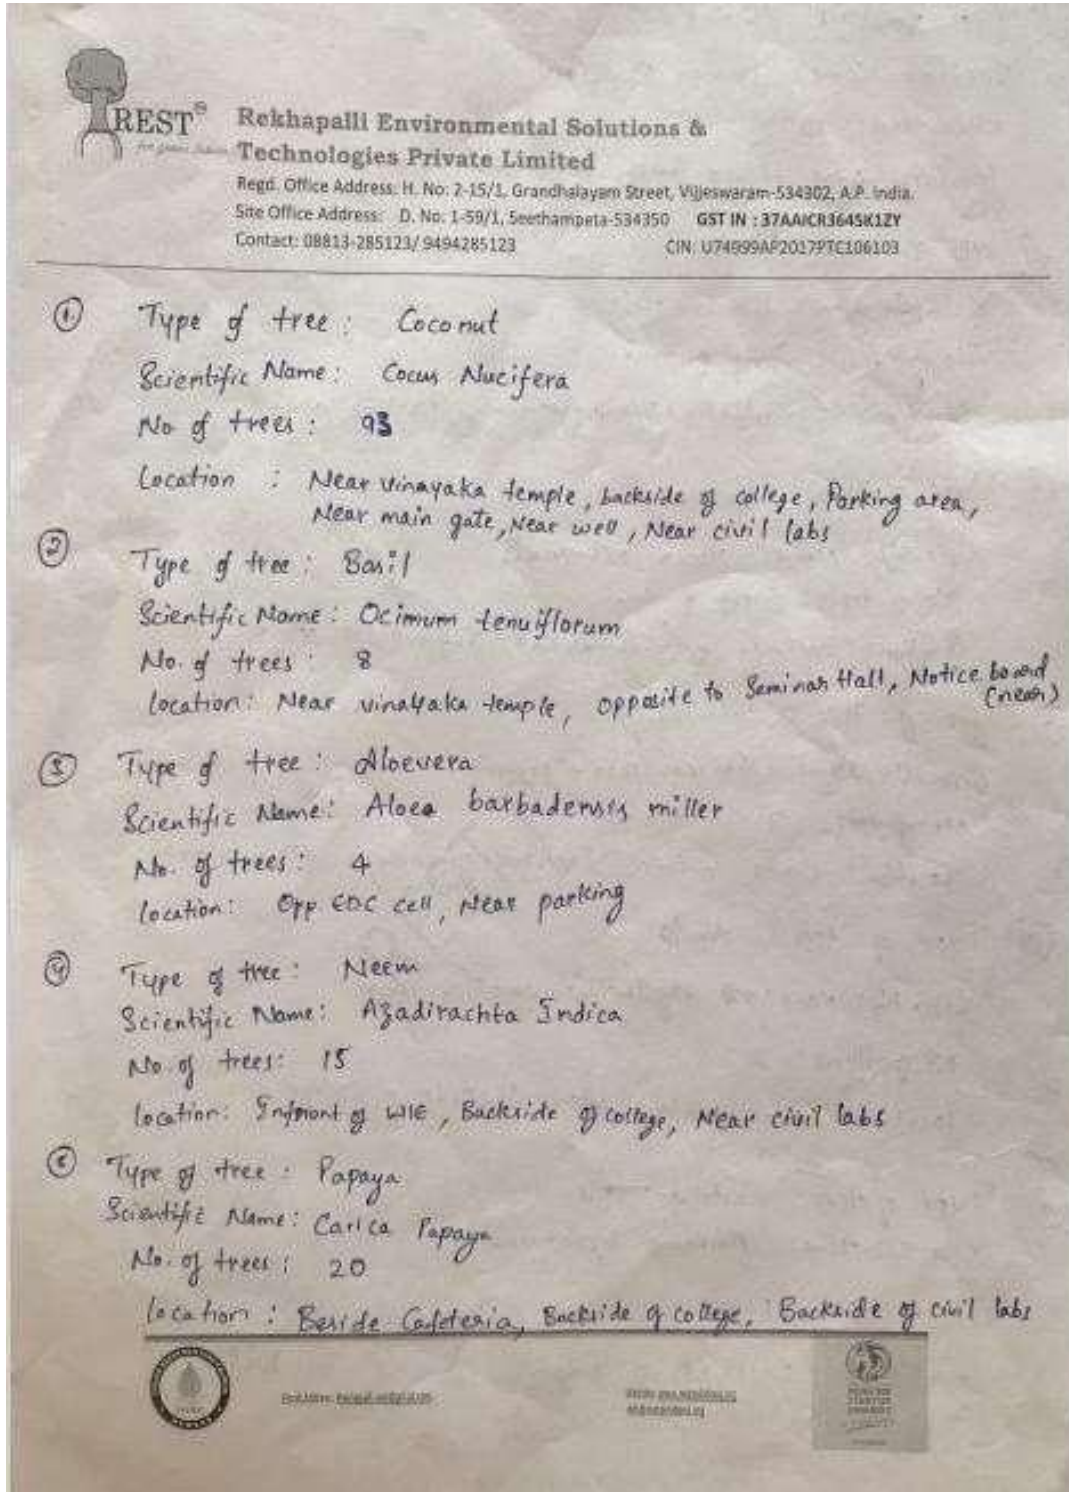 REST®
Rekhapalli Environmental Solutions &
Technologies Private Limited
Regd. Office Address: H. No: 2-15/1, Grandhalayam Street, Vijjeswaram-534302, A.P. India.
Site Office Address: D. No. 1-59/1, Seethampeta-534350 GST IN : 37AAICR3645K1ZY
Contact: 08813-285123/ 9494285123 CIN: U74999AP2017PTC106103
1. Type of tree : Coconut
Scientific Name : Cocus Nucifera
No of trees : 93
Location : Near vinayaka temple, backside of college, Parking area,
Near main gate, Near well, Near civil labs
2 Type of tree : Basil
Scientific Name : Ocimum tenuiflorum
No. of trees : 8
location: Near vinayaka temple, opposite to Seminar Hall, Notice board
(near)
3 Type of tree : Aloevera
Scientific Name: Aloea barbadensis miller
No. of trees : 4
location: Opp EDC cell, Near parking
4 Type of tree : Neem
Scientific Name: Azadirachta Indica
No of trees: 15
location: Infront of WIE, Backside of college, Near civil labs
5 Type of tree : Papaya
Scientific Name: Carica Papaya
No. of trees : 20
location : Beside Cafeteria, Backside of college, Backside of civil labs